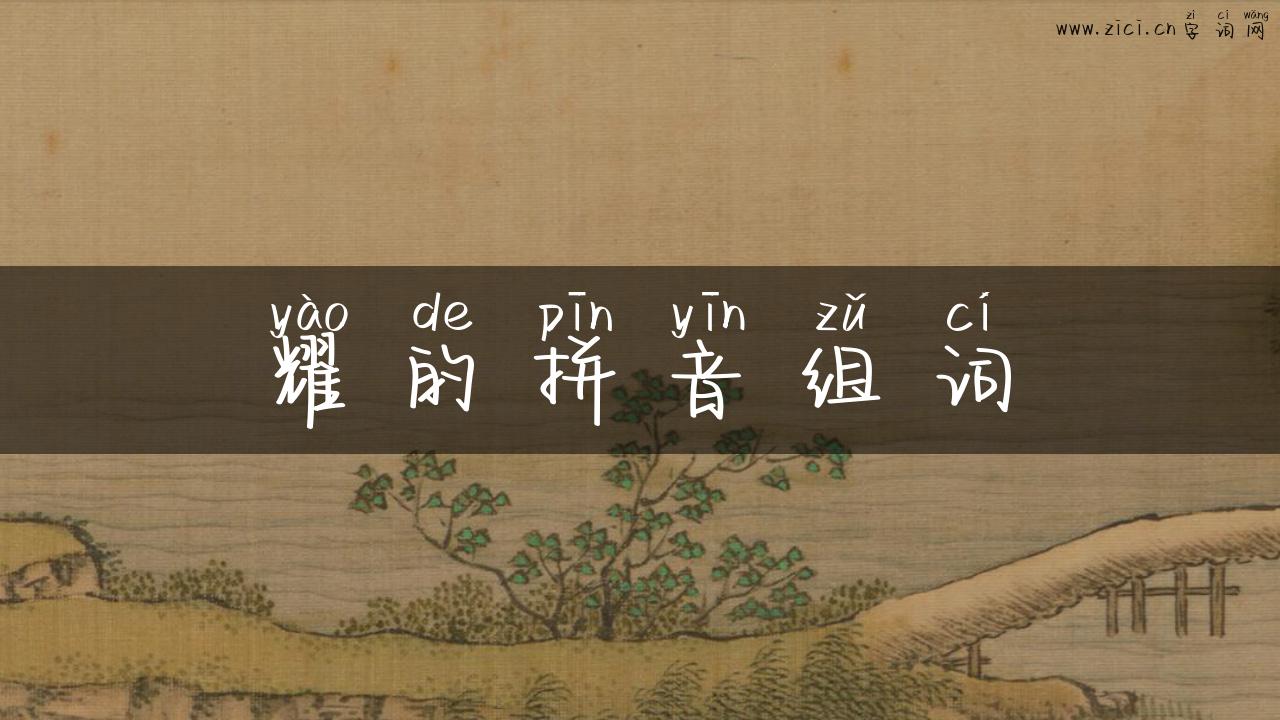 zì cí wǎng
www.zici.cn字词网
yào de pīn yīn zǔ cí
耀的拼音组词